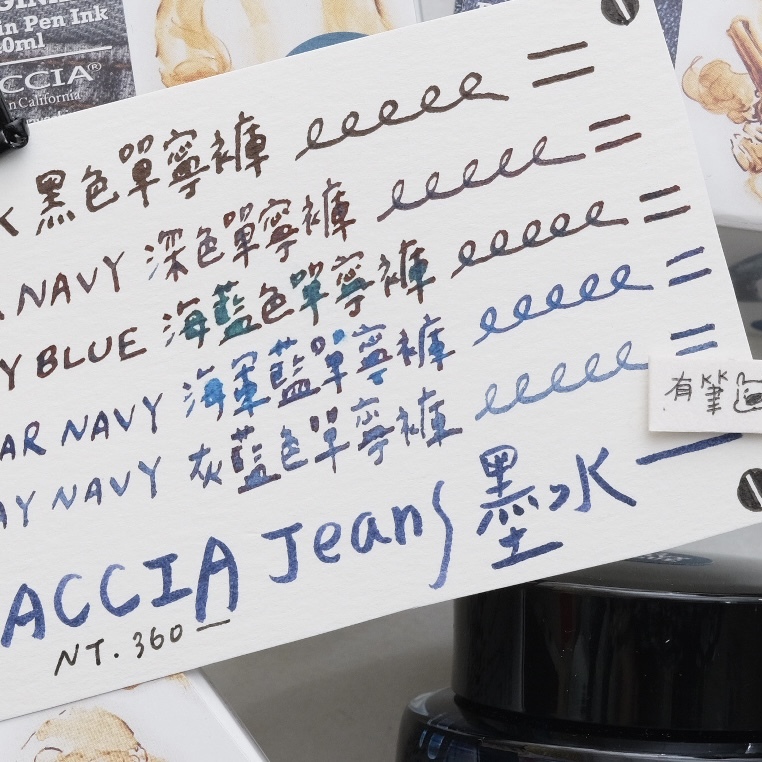 in Pen Ink
0ml
CCIA®
in California
K 黑色單寧褲
NAVY 深色單寧褲
Y BLUE 海藍色單寧褲
AR NAVY 海軍藍單寧褲
AY NAVY 灰藍色單寧褲
ACCIA Jeans 墨水
NT. 360
有筆